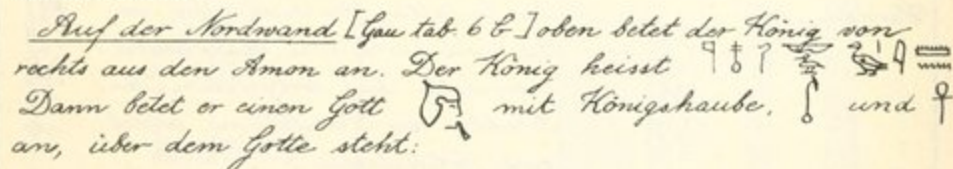 Auf der Nordwand [Gau tab. 6 b] oben betet der König von
rechts aus den Amon an. Der König heisst 𓊹𓄤𓋾 𓅭𓇋𓏠𓈖
Dann betet er einen Gott mit Königshaube, und 𓋹
an, über dem Gotte steht: